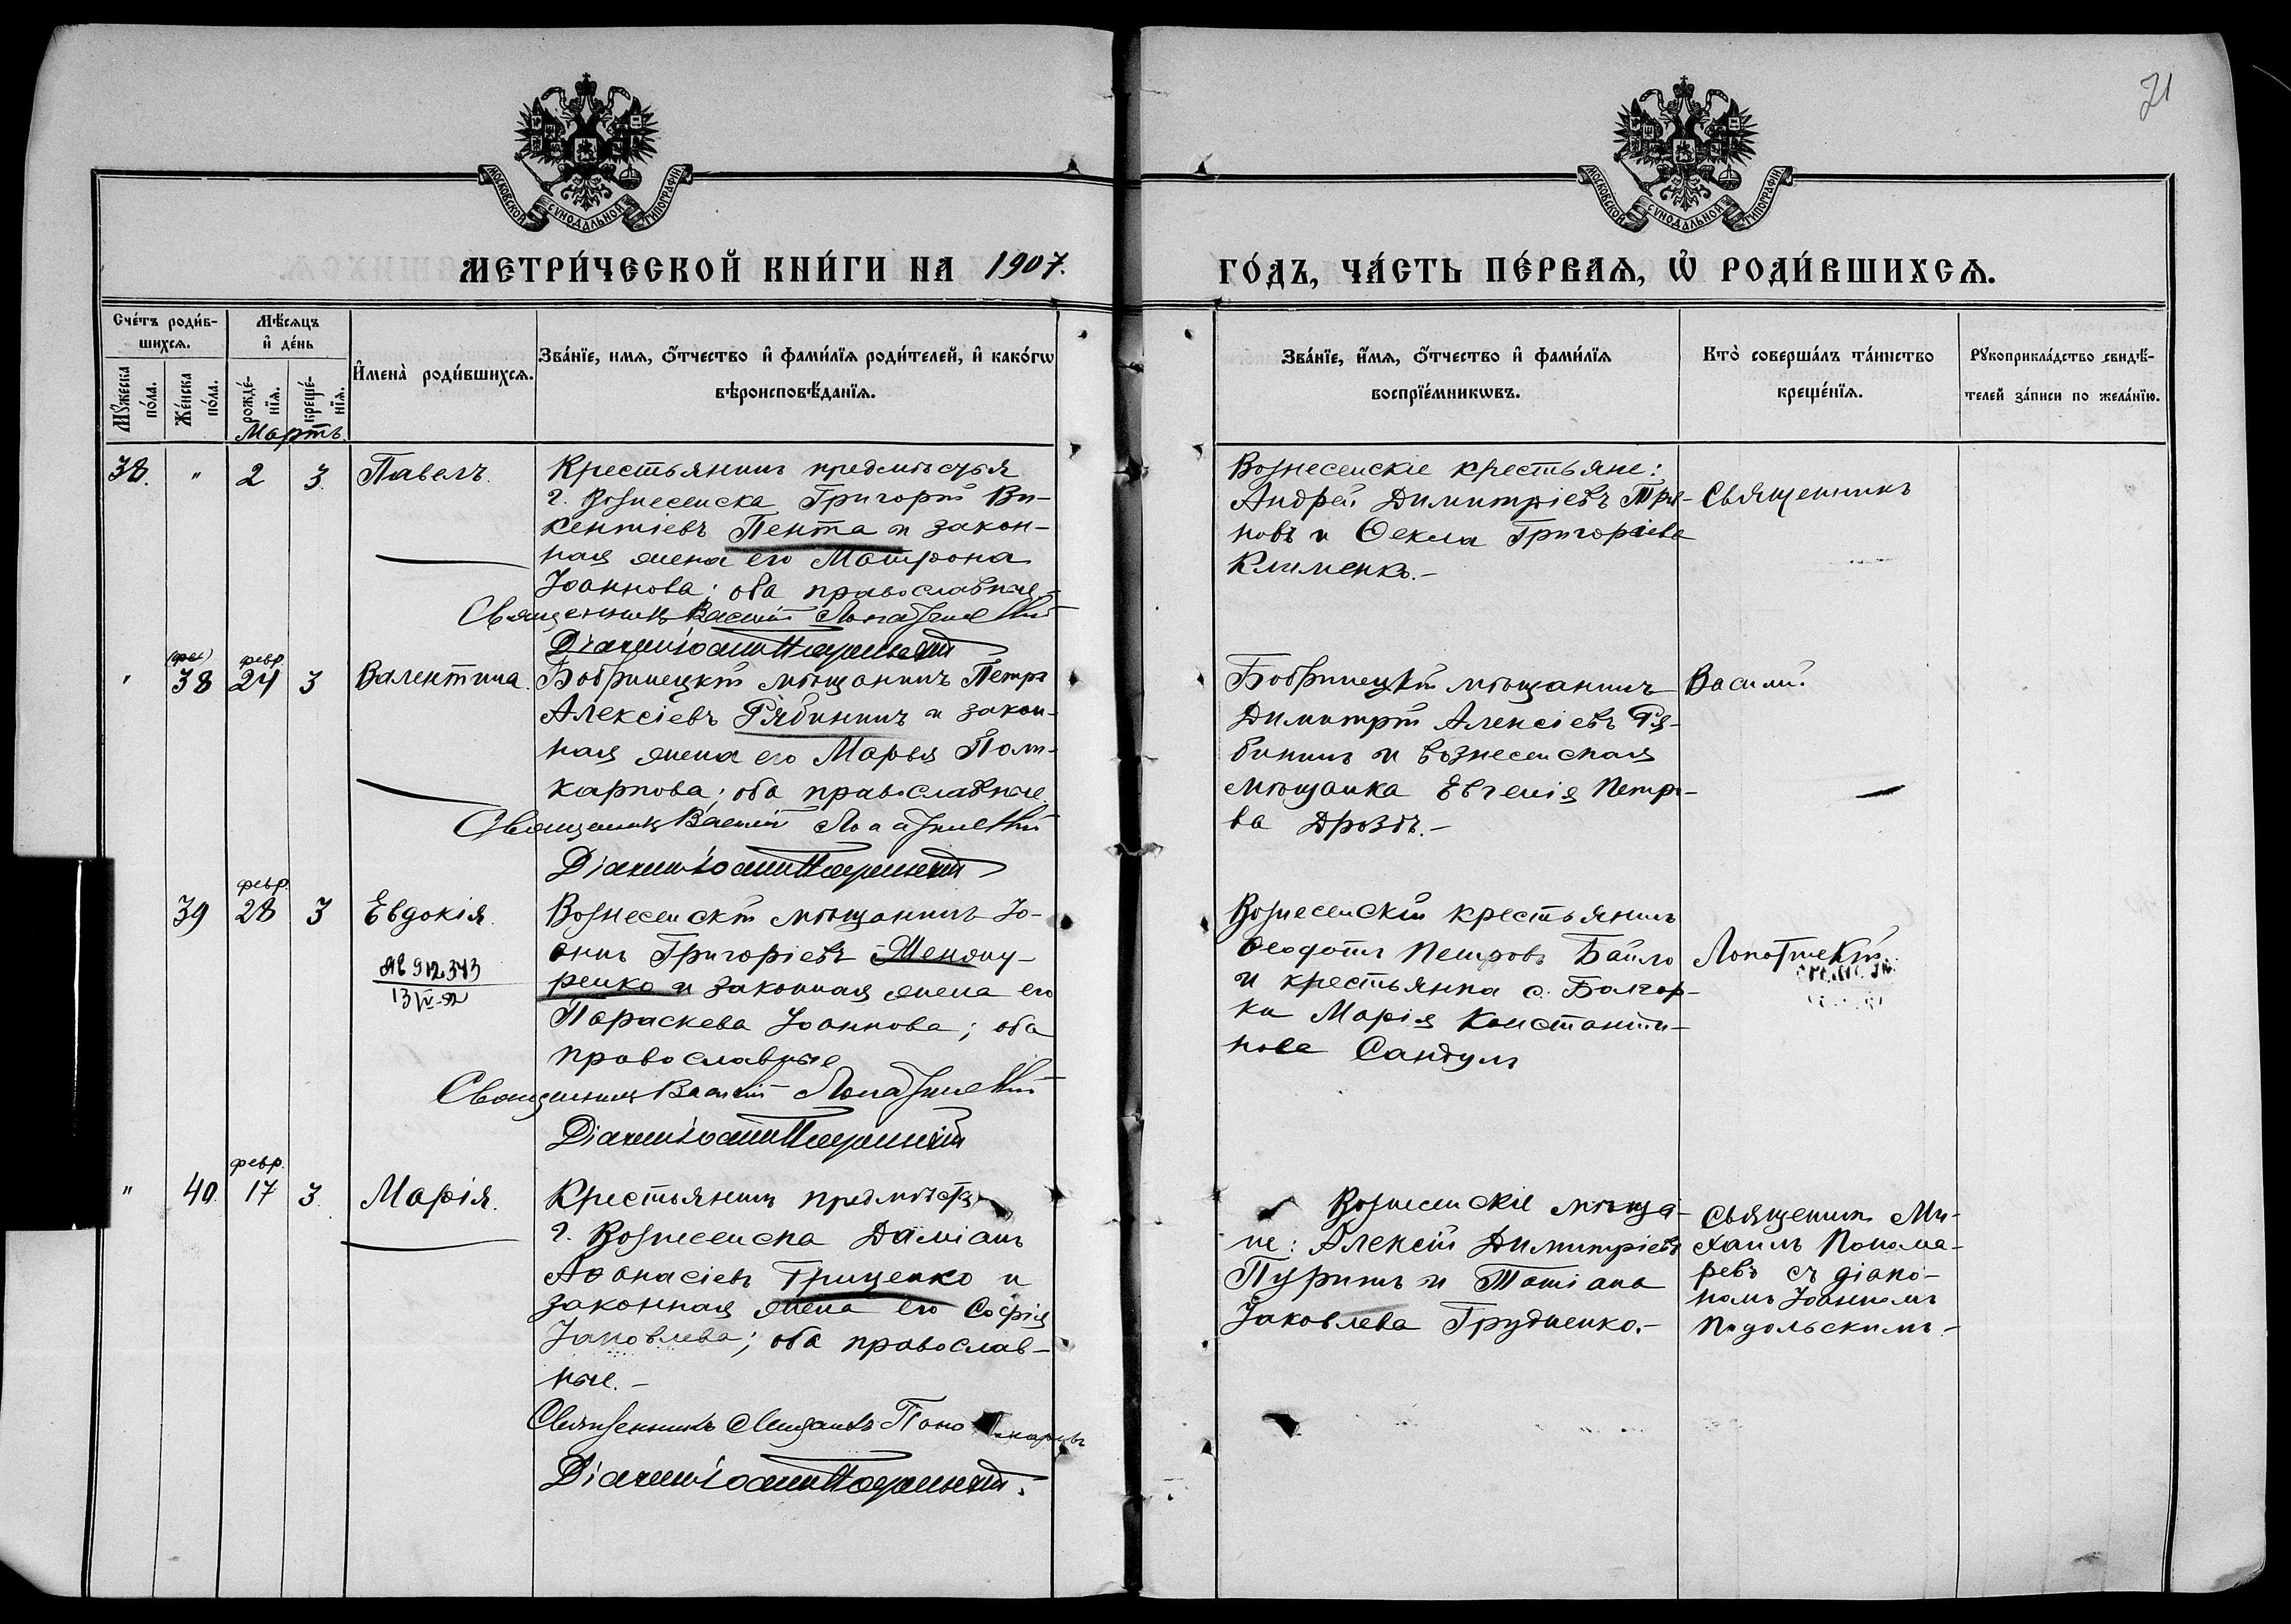 21
МОСКОВСКОЙ СѴНОДАЛЬНОЙ ТИПОГРАФІИ
МОСКОВСКОЙ СѴНОДАЛЬНОЙ ТИПОГРАФІИ
МЕТРИ́ЧЕСКОЙ КНИ́ГИ НА 1907.
ГО́ДЪ, ЧА́СТЬ ПЕ́РВАѦ, Ѡ҆ РОДИ́ВШИХСѦ.
Сче́тъ роди́в-
шихсѧ.
Мѣ́сѧцъ
и҆ де́нь
Мꙋ́жеска по́ла.
Же́нска по́ла.
рожде́-
нїѧ.
креще́-
нїѧ.
Мартъ.
И҆мена̀ роди́вшихсѧ.
Зва́нїе, имѧ, ѻ҆́тчество и҆ фами́лїѧ роди́телей, и҆ како́гѡ
вѣроисповѣ́данїѧ.
Зва́нїе, и҆́мѧ, ѻ҆́тчество и҆ фами́лїѧ
воспрїе́мникѡвъ.
Кто̀ соверша́лъ та́инство
креще́нїѧ.
Рꙋкоприкла́дство свидѣ́-
телей за́писи по жела́нїю.
38. " 2 3. Павелъ.
Крестьянинъ предмѣстья
г. Вознесенска Григорій Ви-
кентіевъ Пента и закон-
ная жена его Матрона
Іоаннова; оба православные.-
Священникъ Василій Лопатинскій
Діаконъ Іоаннъ Подольскій
Вознесенскіе крестьяне:
Андрей Димитріевъ
новъ и Ѳекла Григоріева
Клименко.-
Священникъ
38 февр. 24 3 Валентина.
Бобринецкій мѣщанинъ Петръ
Алексіевъ Рябининъ и закон-
ная жена его Марья Поли-
карпова; оба православные.
Священникъ Василій Лопатинскій
Діаконъ Іоаннъ Подольскій
Бобринецкій мѣщанинъ
Димитрій Алексіевъ Ря-
бининъ и вознесенская
мѣщанка Евгенія Петро-
ва Дроздъ.-
Василій
39 февр. 28 3 Евдокія.
912373
Вознесенскій мѣщанинъ Іо-
аннъ Григоріевъ
ренко и законная жена его
Параскева Іоаннова; оба
православные
Священникъ Василій Лопатинскій
Діаконъ Іоаннъ Подольскій
Вознесенскій крестьянинъ
Ѳеодотъ Петровъ Байло
и крестьянка с. Болгар-
ки Марія Константи-
нова Сандулъ
Лопатинскій.
" 40. февр. 17 3. Марія.
Крестьянинъ предмѣстья
г. Вознесенска Даміанъ
Аѳанасіевъ Гриценко и
законная жена его Софія
Іаковлева; оба православ-
ные.-
Священникъ Михаилъ Пономаревъ
Діаконъ Іоаннъ Подольскій.
Вознесенскіе мѣща-
не: Алексій Димитріевъ
Пуришъ и Татіана
Іаковлева Грудненко.-
Священник Ми-
хаилъ Понома-
ревъ съ діако-
номъ Іоанномъ
Подольскимъ.-